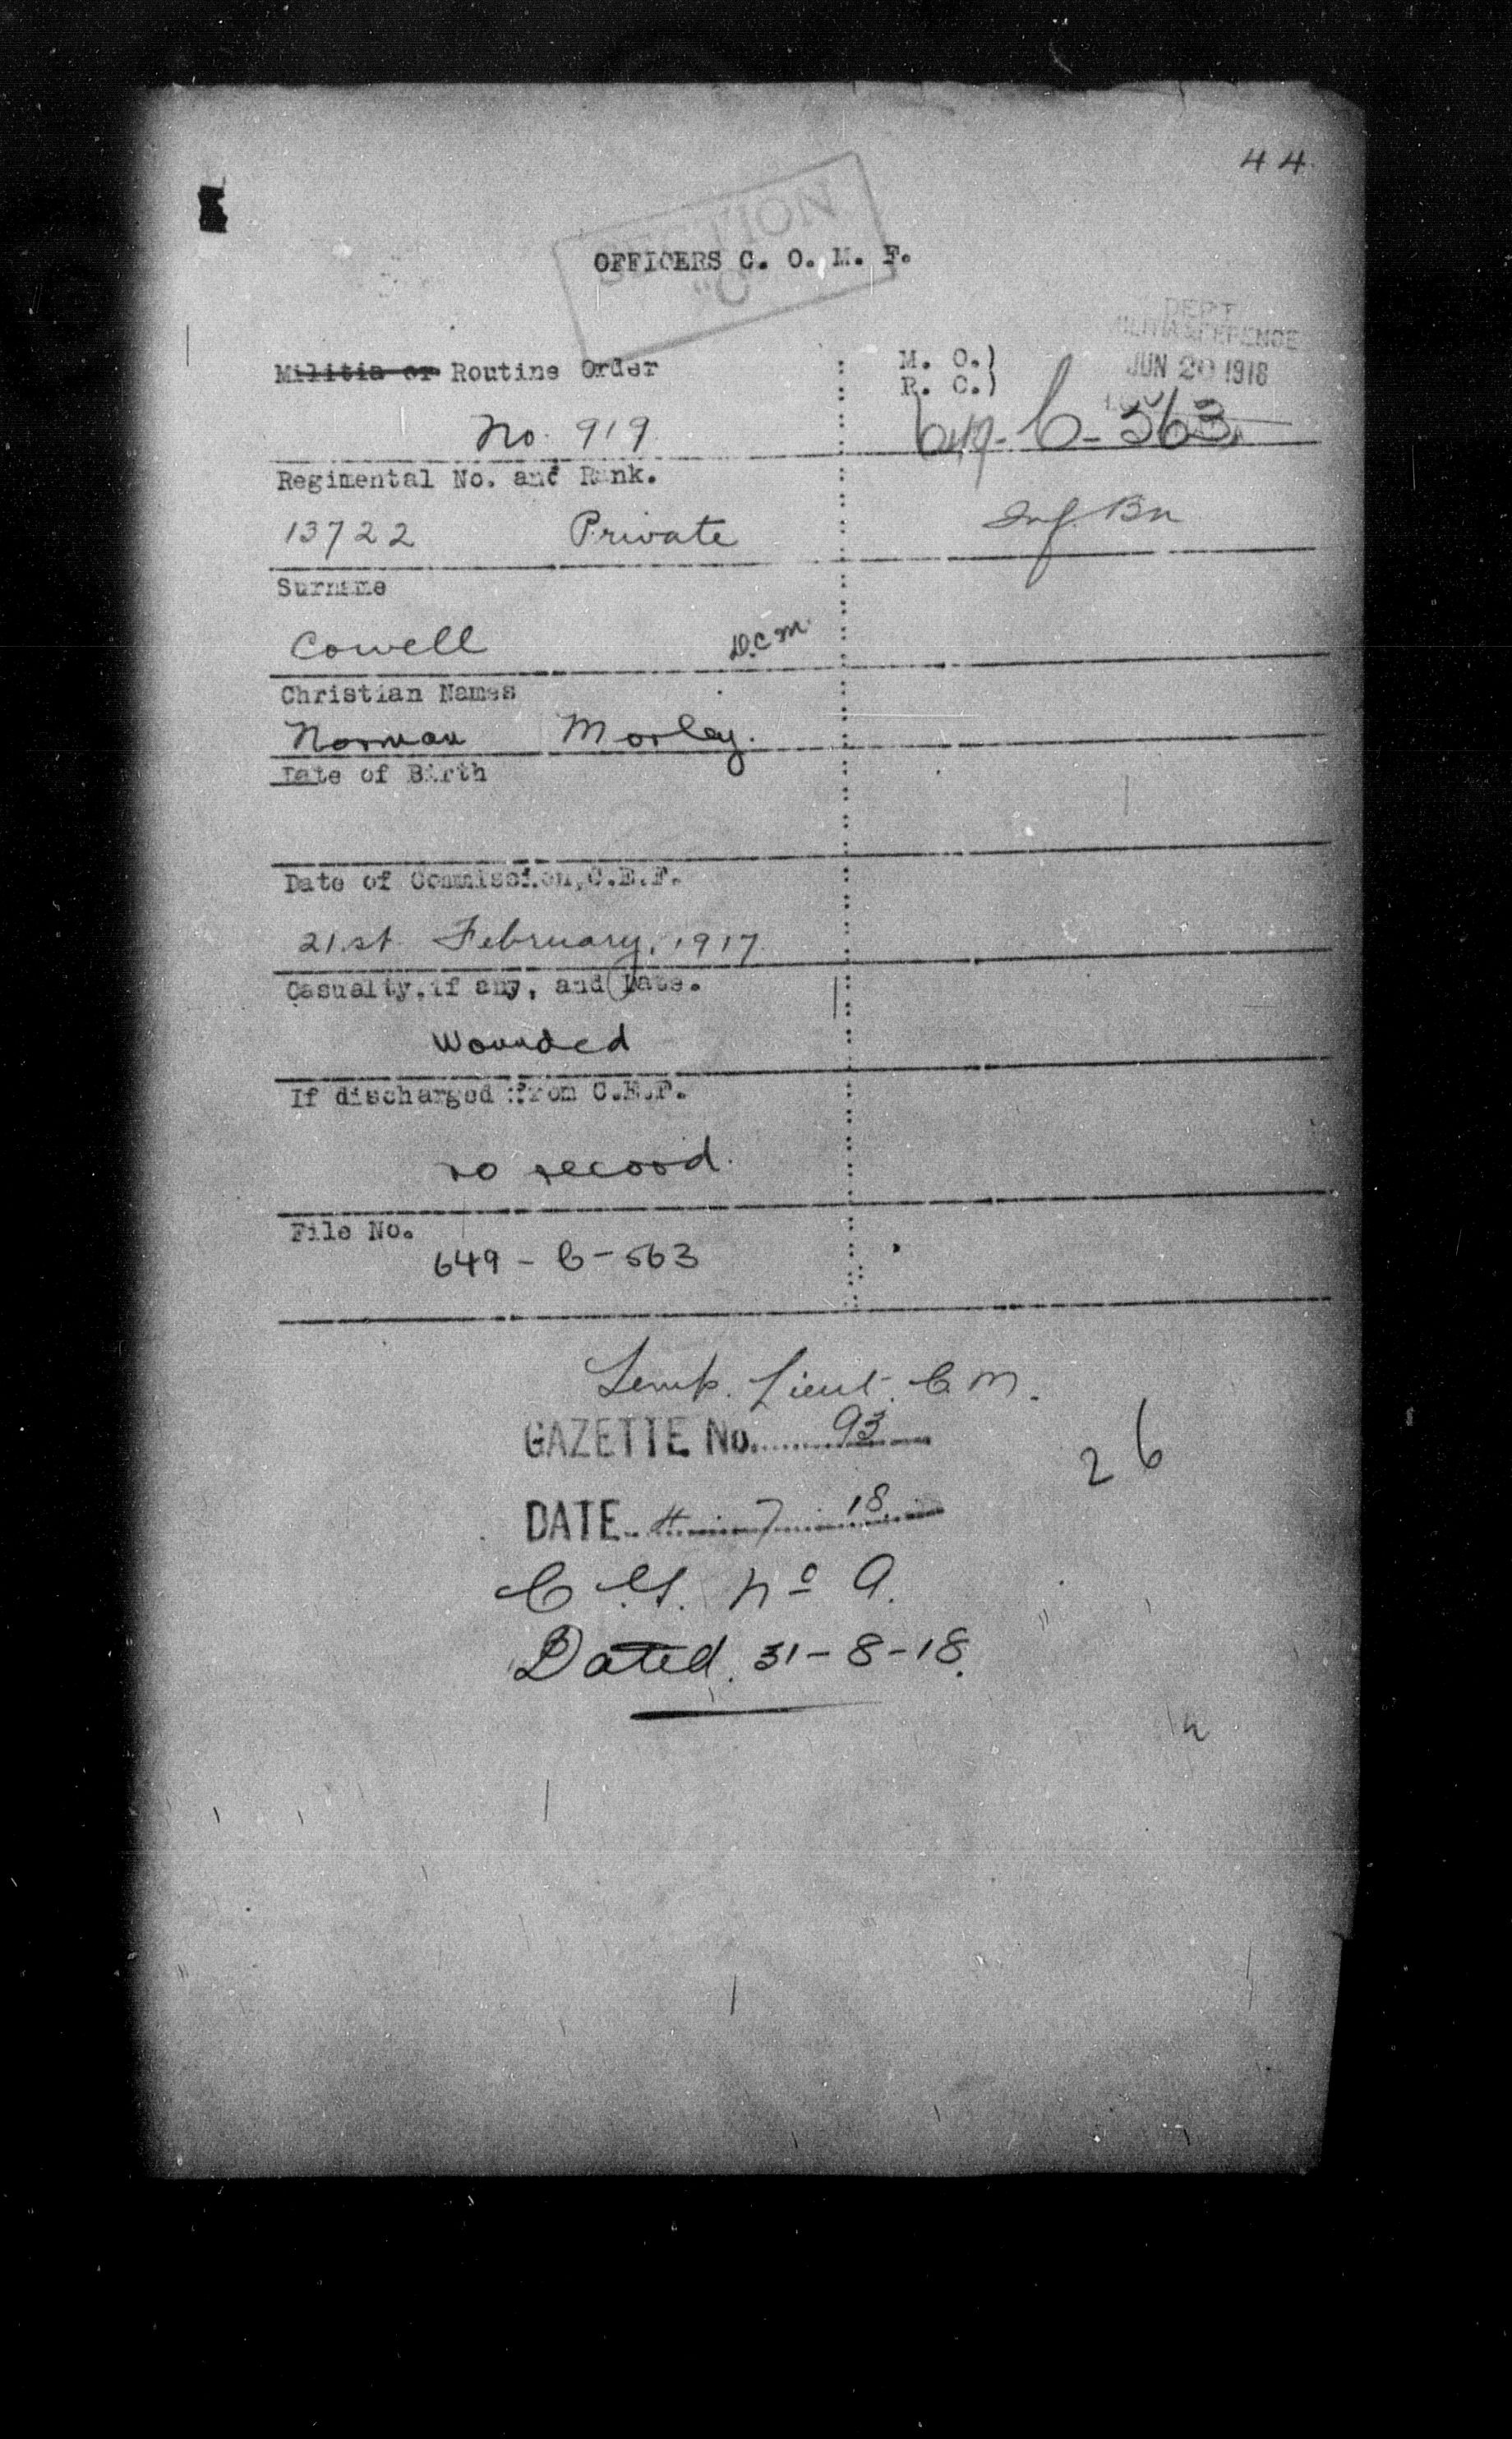 44
SECTION
"C"
OFFICERS C. O. M. F.
DEPT
MILITIA & DEFENCE
JUN 20 1918
Militia or Routine Order
M. O.)
R. C.)
No. 919
649-C-563
Regimental No. and Rank.
13722 Private
Inf. Bn
Surname
Cowell D.C.M.
Christian Names
Norman Morley.
Date of Birth
Date of Commission, C.E.F.
21st February, 1917
Casualty, if any, and Date.
Wounded
If discharged from C.E.F.
no record.
File No.
649-C-563
Temp. Lieut. C.M.
GAZETTE No. 93
26
DATE 4 7 18
No 9.
Dated. 31-8-18.